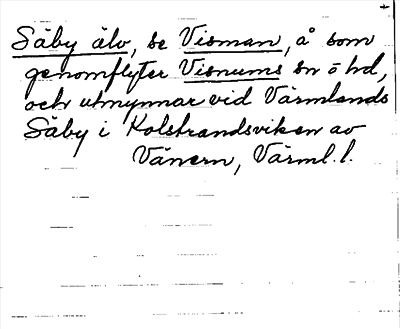 Säby älv, se Visman, å som
genomflyter Visnums sn ö hd,
och utmynnar vid Värmlands
Säby i Kolstrandsviken av
Vänern, Värml. l.